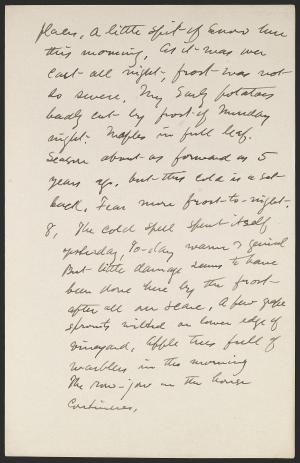 places, A little spit of snow here
this morning, As it was over
cast all night, frost was not
so severe, My Early potatoes
badly cut by frost of Monday
night. Maples in full leaf.
Season about as forward as 5
years ago, but this cold is a set
back. Fear more frost to-night.
8, The cold spell spent itself
yesterday, To-day warm & genial
But little damage seems to have
been done here by the frost
after all our scare, A few grape
sprouts wilted on lower edge of
vineyard, Apple trees full of
warblers in the morning
The row-jow in the house
Continues,